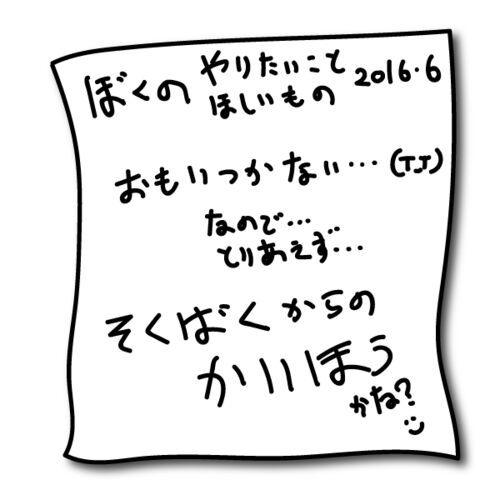 ぼくの やりたいこと ほしいもの 2016.6
おもいつかない…(TJ)
なので…
とりあえず…
そくばくからの
かいいほう
かな?